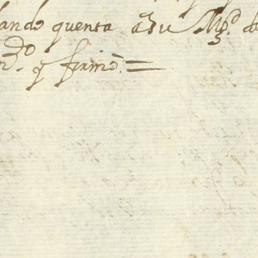 ando quenta a su Mg.d de
q firmó =